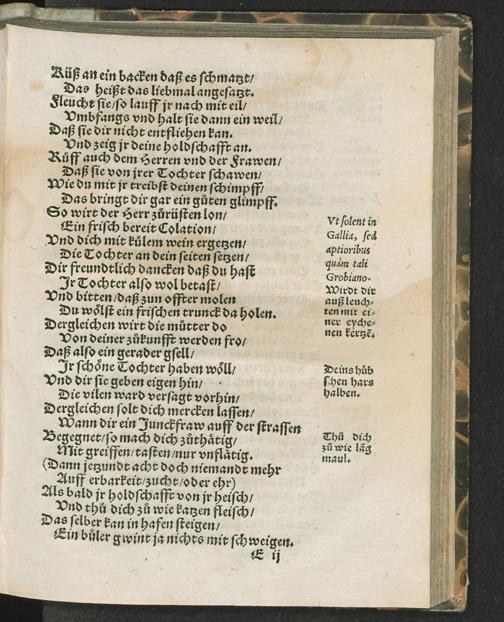 Küß an ein backen daß es schmatzt/
Das heißt das liebmal angesatzt.
Fleucht sie/so lauff jr nach mit eil/
Vmbfangs vnd halt sie dann ein weil/
Daß sie dir nicht entfliehen kan.
Vnd zeig jr deine holdschafft an.
Rüff auch dem Herren vnd der Frawen/
Daß sie von jrer Tochter schawen/
Wie du mit jr treibst deinen schimpff/
Das bringt dir gar ein gůten glimpff.
So wirt der Herr zůrüsten lon/
Ein frisch bereit Colation/
Vnd dich mit külem wein ergetzen/
Die Tochter an dein seiten setzen/
Dir freundtlich dancken daß du hast
Jr Tochter also wol betast/
Vnd bitten/daß zun offter molen
Du wölst ein frischen trunck da holen.
Dergleichen wirt die můtter do
Von deiner zůkunfft werden fro/
Daß also ein gerader gsell/
Jr schöne Tochter haben wöll/
Vnd dir sie geben eigen hin/
Die vilen ward versagt vorhin/
Dergleichen solt dich mercken lassen/
Wann dir ein Junckfraw auff der strassen
Begegnet/so mach dich zůthätig/
Mit greiffen/tasten/nur vnflätig.
(Dann jetzundt acht doch niemandt mehr
Auff erbarkeit/zucht/oder ehr)
Als bald jr holdschafft von jr heisch/
Vnd thů dich zů wie katzen fleisch/
Das selber kan in hafen steigen/
Ein bůler gwint ja nichts mit schweigen.
E ij
Vt solent in
Gallia, sed
aptioribus
quàm tali
Grobiano.
Wirdt dir
auß leuch-
ten mit ei-
ner eyche-
nen kertzē.
Deins hüb
schen hars
halben.
Thů dich
zů wie läg
maul.